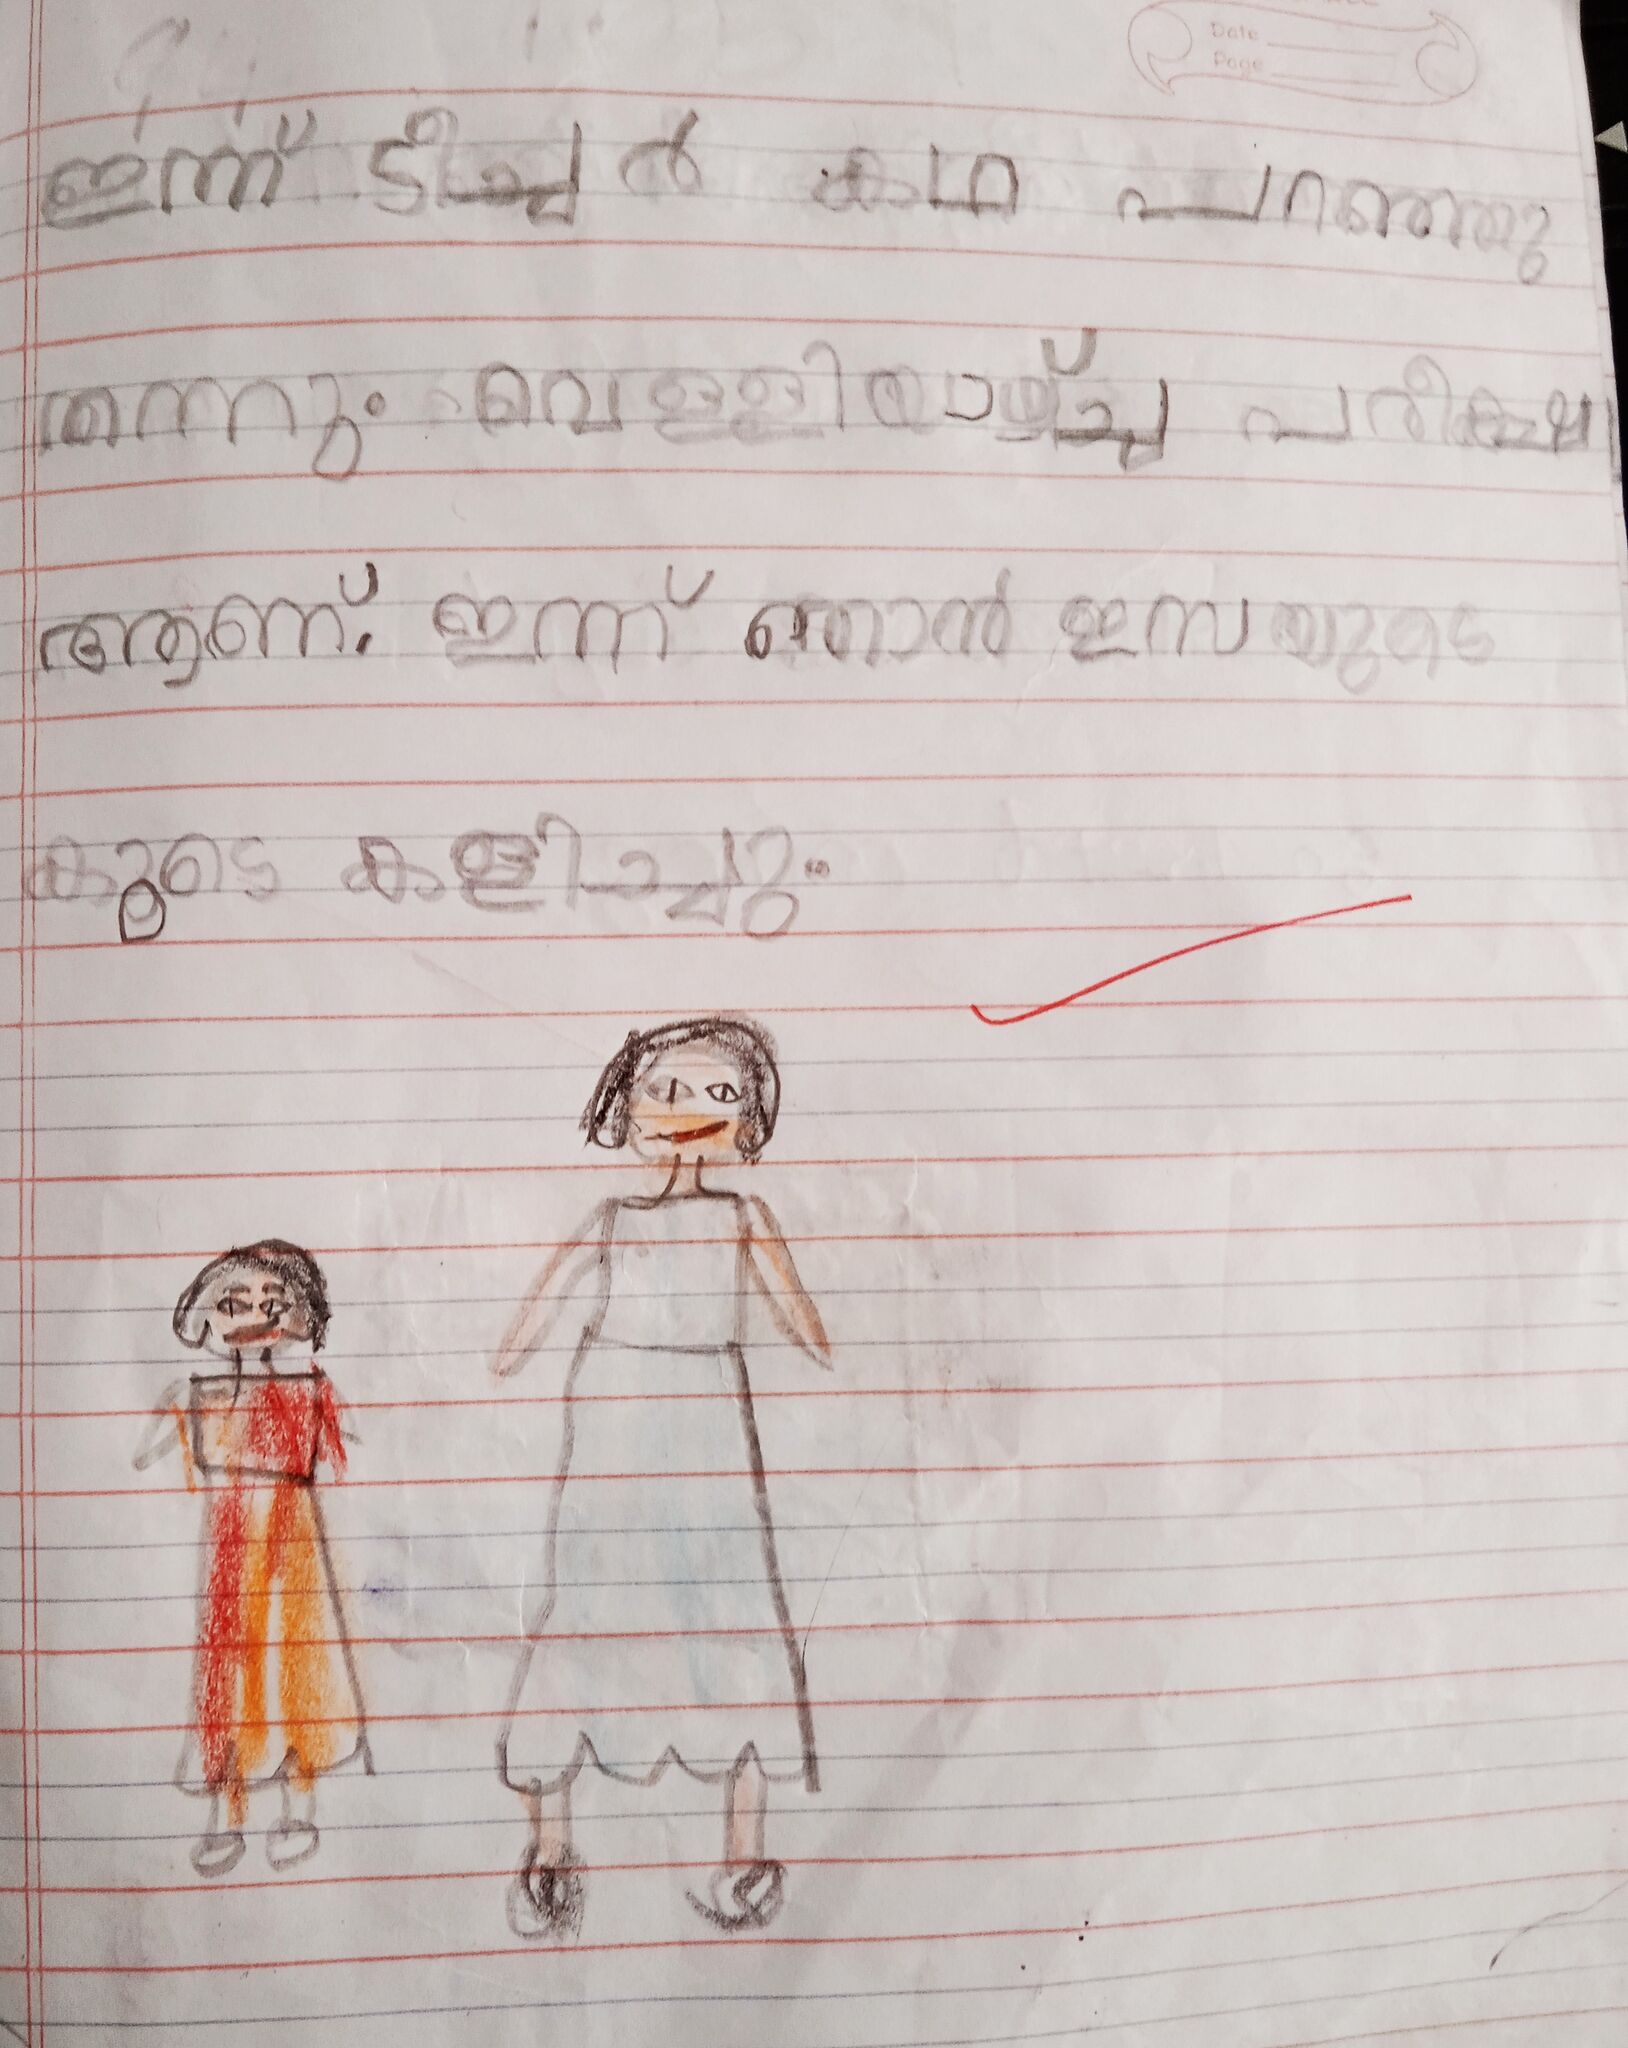 Date
Page
ഇന്ന് ടീച്ചർ കഥ പറഞ്ഞു
തന്നും. വെള്ളിയാഴ്ച്ച പരീക്ഷ
ആണ്. ഇന്ന് ഞാൻ ഇസയുടെ
കൂടെ കളിച്ചു.